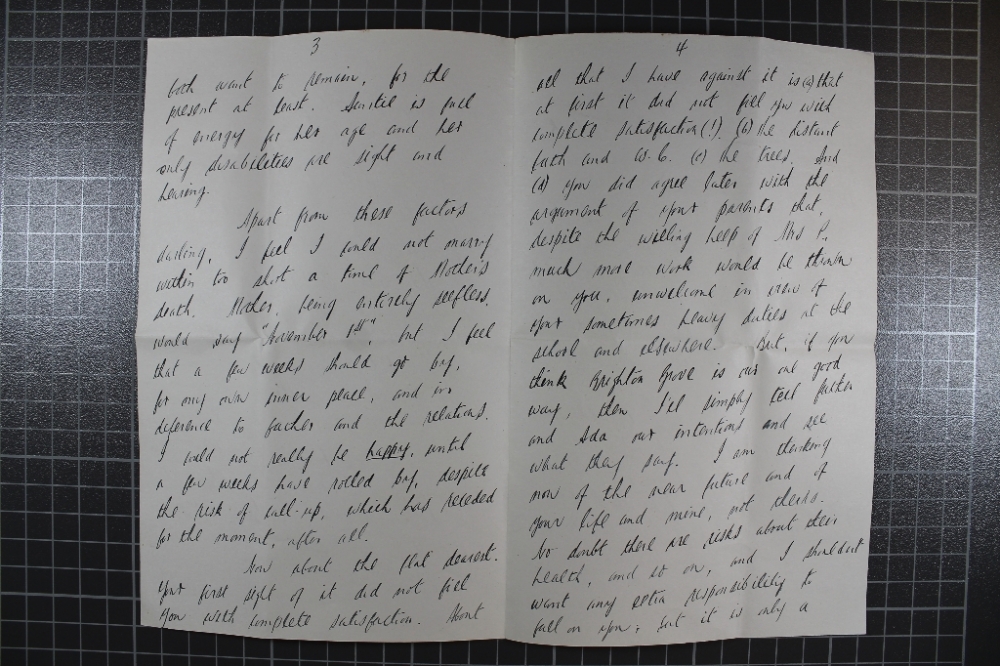 3
both want to remain, for the
present at least. Auntie is full
of energy for her age and her
only disabilities are sight and
hearing.
Apart from these factors
darling, I feel I could not marry
within too short a time of Mother's
death. Mother, being entirely selfless,
would say "November 1st", but I feel
that a few weeks should go by,
for my own inner peace, and in
deference to father and the relations.
I could not really be happy, until
a few weeks have rolled by, despite
the risk of call-up, which has receded
for the moment, after all.
Now about the flat dearest.
Your first sight of it did not fill
you with complete satisfaction. About
4
all that I have against it is (a) that
at first it did not fill you with
complete satisfaction (!). (b) the distant
bath and W.C. (c) the trees. And
(d) you did agree later with the
argument of your parents that,
despite the willing help of Mrs P.,
much more work would be thrown
on you, unwelcome in view of
your sometimes heavy duties at the
school and elsewhere. But, if you
think Brighton Grove is our one good
way, then I'll simply tell father
and Ada our intentions and see
what they say. I am thinking
now of the near future and of
your life and mine, not theirs.
No doubt there are risks about their
health, and so on, and I shouldn't
want any extra responsibility to
fall on you; but it is only a